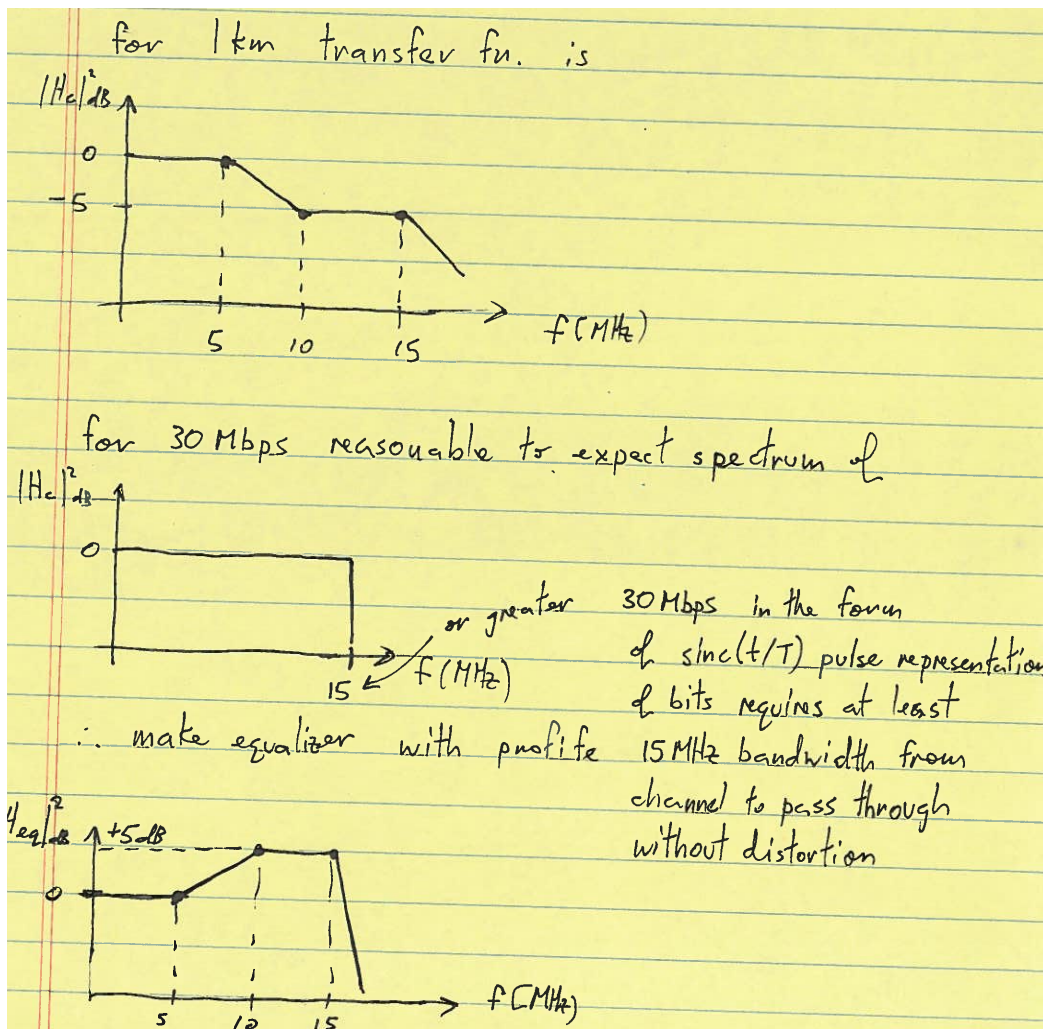 for 1 km transfer fn. is
|Hc|²dB
0
-5
5 10 15
f(MHz)
for 30 Mbps reasonable to expect spectrum of
|Hc|²dB
0
or greater
15
f(MHz)
30 Mbps in the form
of sinc(t/T) pulse representation
of bits requires at least
15 MHz bandwidth from
channel to pass through
without distortion
∴ make equalizer with profife
Heq|²dB
+5dB
0
5 10 15
f(MHz)